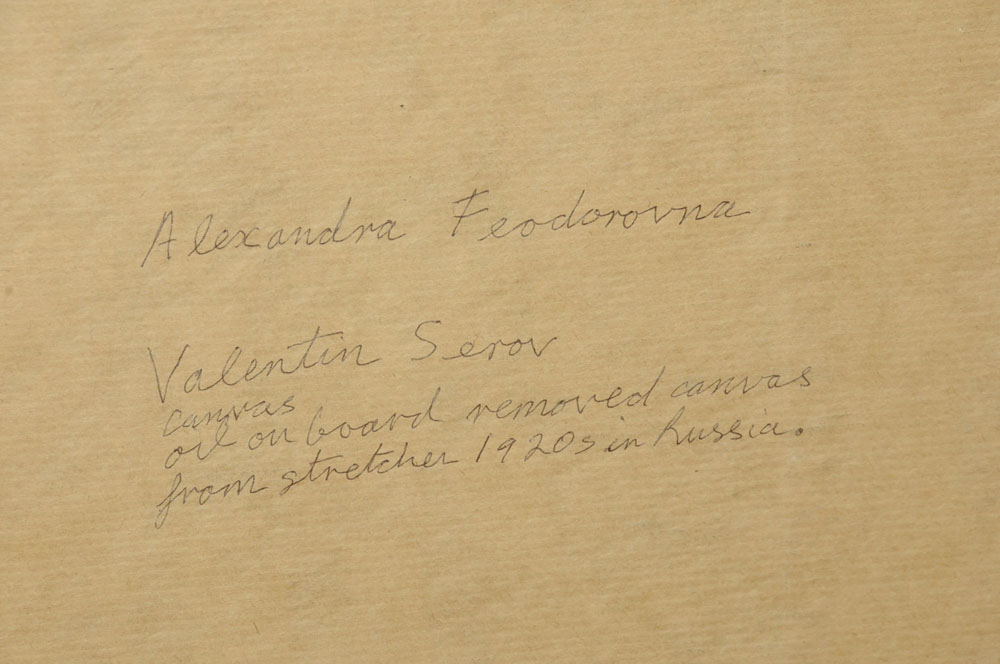 Alexandra Feodorovna
Valentin Serov
canvas
oil on board removed canvas
from stretcher 1920s in Russia.